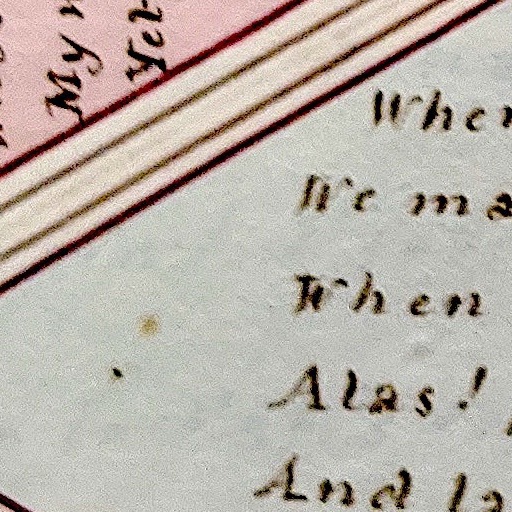 My
Yet
When
We ma
When
Alas!
And la